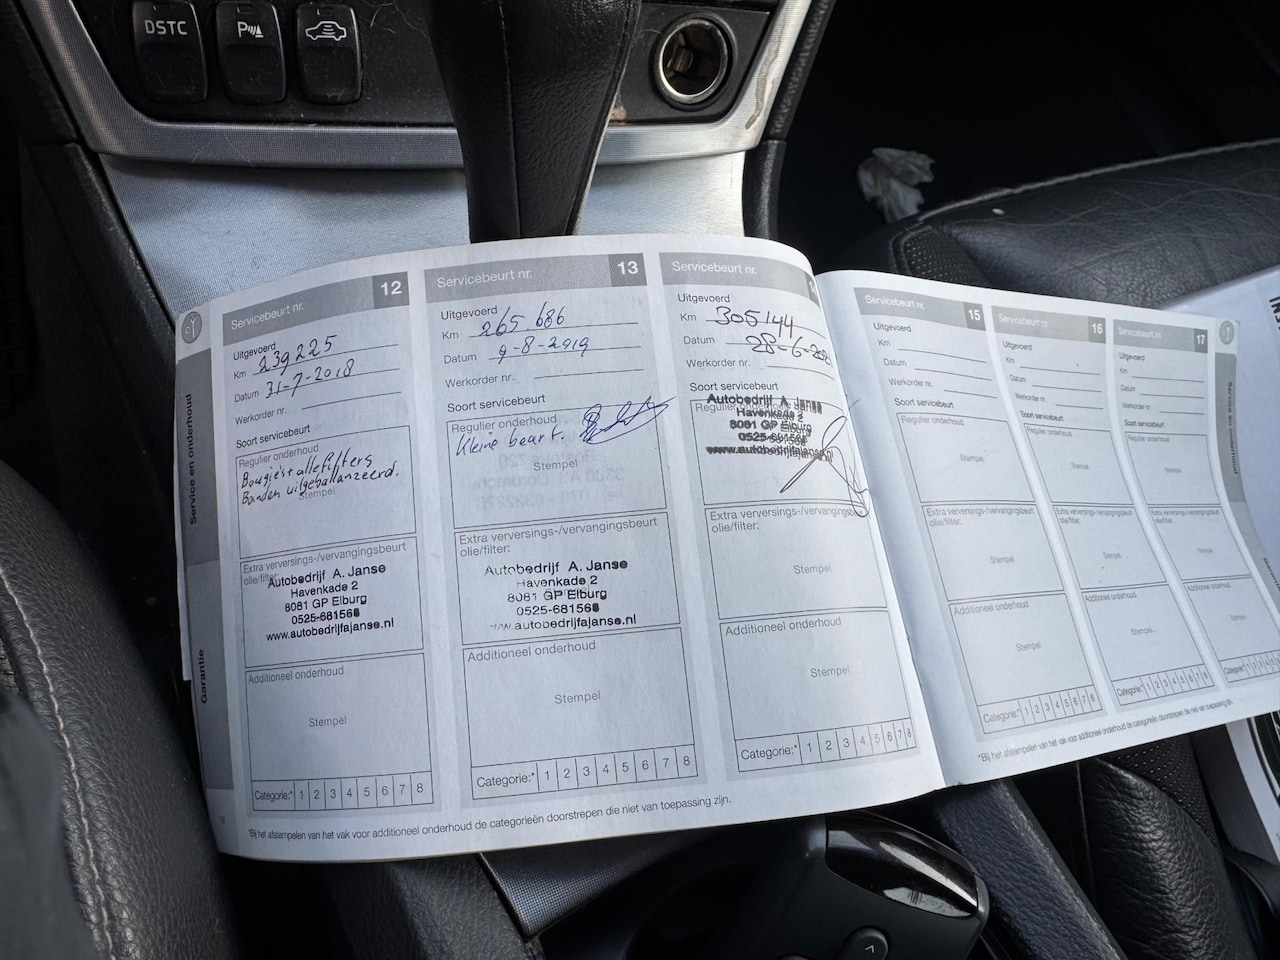 DSTC
P
Service en onderhoud
Garantie
Servicebeurt nr. 12
Uitgevoerd
Km 239225
Datum 31-7-2018
Werkorder nr.
Soort servicebeurt
Regulier onderhoud
Bougies+allefilters
Banden uitgeballanzeerd.
Stempel
Extra verversings-/vervangingsbeurt
olie/filter:
Autobedrijf A. Janse
Havenkade 2
8081 GP Elburg
0525-681568
www.autobedrijfajanse.nl
Additioneel onderhoud
Stempel
Categorie:* 1 2 3 4 5 6 7 8
Servicebeurt nr. 13
Uitgevoerd
Km 265.686
Datum 9-8-2019
Werkorder nr.
Soort servicebeurt
Regulier onderhoud
Kleine beurt.
Stempel
Extra verversings-/vervangingsbeurt
olie/filter:
Autobedrijf A. Janse
Havenkade 2
8081 GP Elburg
0525-681568
www.autobedrijfajanse.nl
Additioneel onderhoud
Stempel
Categorie:* 1 2 3 4 5 6 7 8
Servicebeurt nr.
Uitgevoerd
Km 305144
Datum 28-6-
Werkorder nr.
Soort servicebeurt
Regulier onderhoud
Autobedrijf A. Janse
Havenkade 2
8081 GP Elburg
0525-681568
www.autobedrijfajanse.nl
Extra verversings-/vervangingsbeurt
olie/filter:
Stempel
Additioneel onderhoud
Stempel
Categorie:* 1 2 3 4 5 6 7 8
*Bij het afstempelen van het vak voor additioneel onderhoud de categorieën doorstrepen die niet van toepassing zijn.
Servicebeurt nr. 15
Uitgevoerd
Km
Datum
Werkorder nr.
Soort servicebeurt
Regulier onderhoud
Stempel
Extra verversings-/vervangingsbeurt
olie/filter:
Stempel
Additioneel onderhoud
Stempel
Categorie:* 1 2 3 4 5 6 7 8
Servicebeurt nr. 16
Uitgevoerd
Km
Datum
Werkorder nr.
Soort servicebeurt
Regulier onderhoud
Stempel
Extra verversings-/vervangingsbeurt
olie/filter:
Stempel
Additioneel onderhoud
Stempel
Categorie:* 1 2 3 4 5 6 7 8
Servicebeurt nr. 17
Uitgevoerd
Km
Datum
Werkorder nr.
Soort servicebeurt
Regulier onderhoud
Stempel
Extra verversings-/vervangingsbeurt
olie/filter:
Stempel
Additioneel onderhoud
Stempel
Categorie:* 1 2 3 4 5
*Bij het afstempelen van het vak voor additioneel onderhoud de categorieën doorstrepen die niet van toepassing zijn.
Service en onderhoud